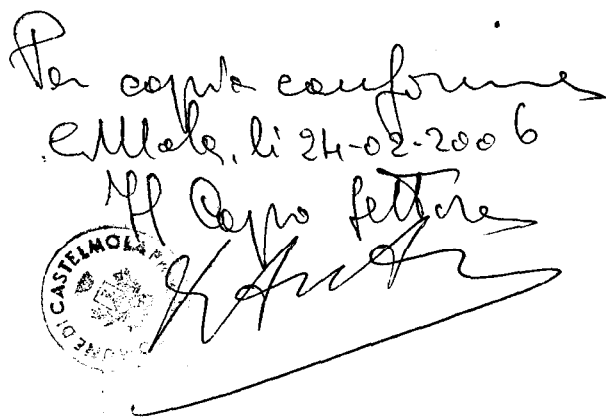 Per copia conforme
C/Mola, li 24-02-2006
Il Capo Settore
COMUNE DI CASTELMOLA